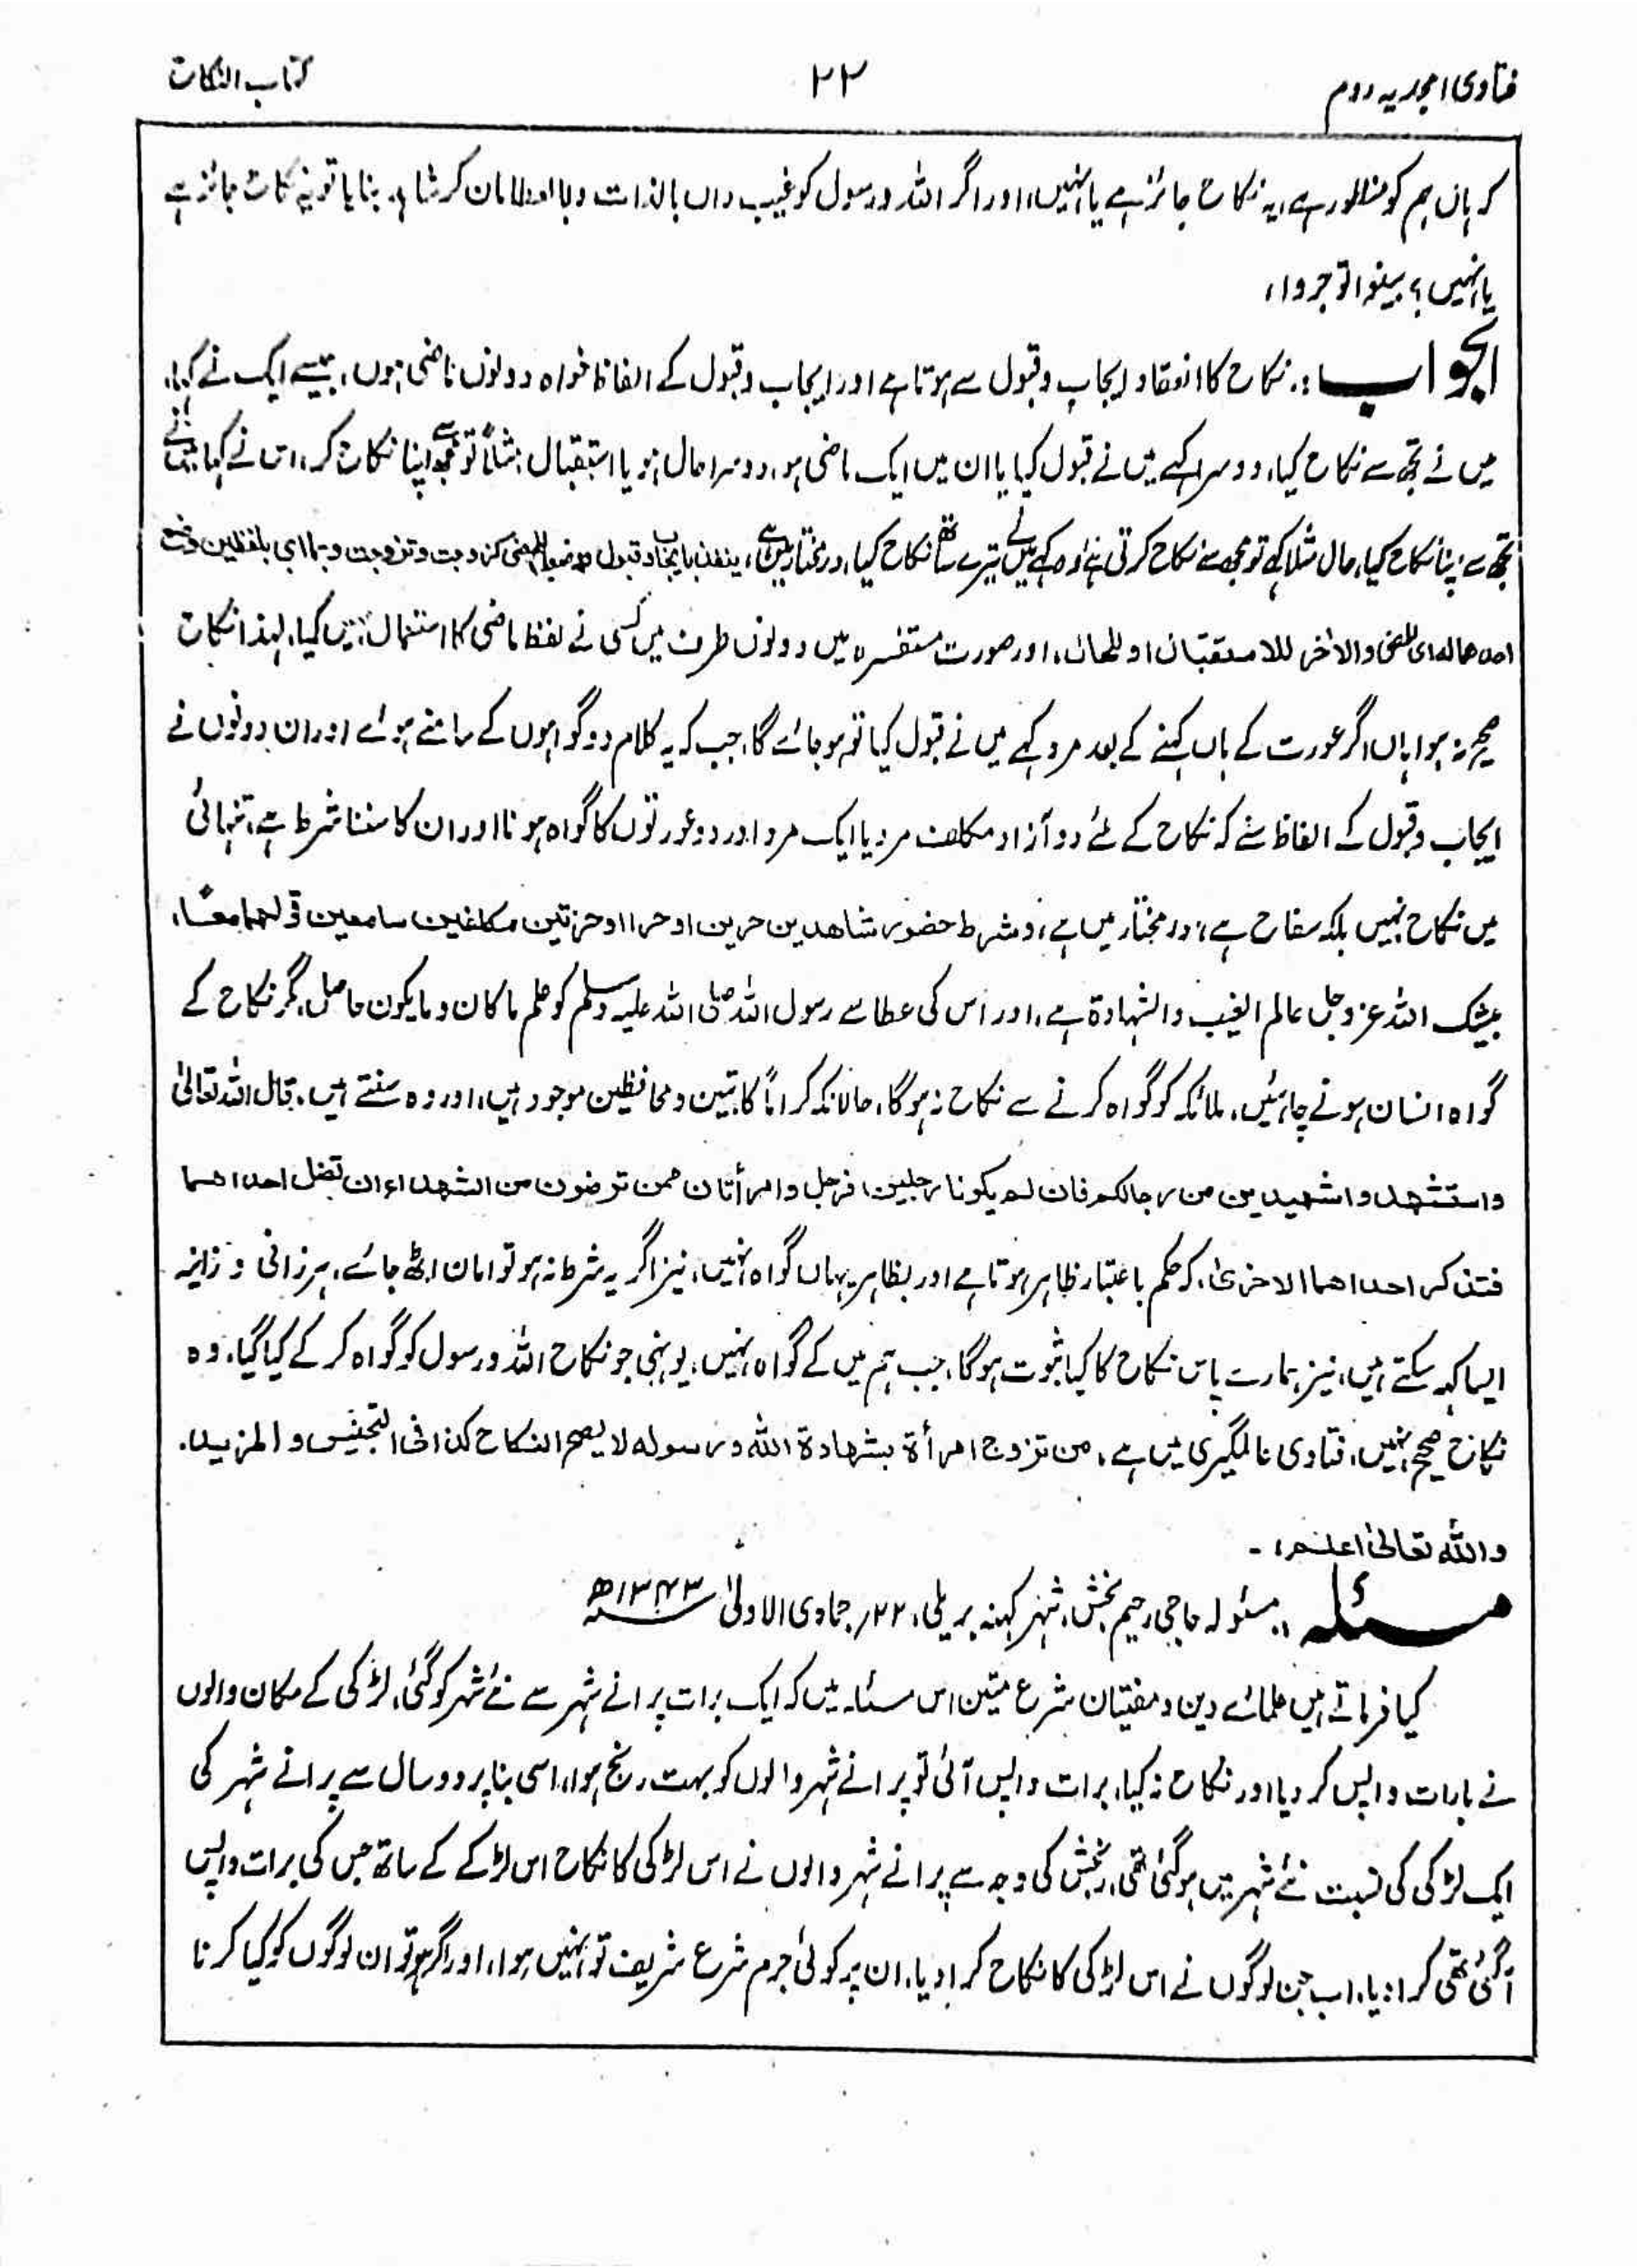 فتاوی امجدیہ دوم
۲۲
کتاب النکاح
کہ ہاں ہم کو منظور ہے، یہ نکاح جائز ہے یا نہیں، اور اگر اللہ ورسول کو غیب داں بالذات و بالعطا مان کر شاہد بنایا تو یہ نکاح جائز ہے
یا نہیں؟ بینوا توجروا،
الجواب :۔ نکاح کا انعقاد ایجاب وقبول سے ہوتا ہے اور ایجاب وقبول کے الفاظ خواہ دونوں ماضی ہوں، جیسے ایک نے کہا،
میں نے تجھ سے نکاح کیا، دوسرا کہے میں نے قبول کیا یا ان میں ایک ماضی ہو، دوسرا حال ہو یا استقبال، مثلاً تو مجھ سے اپنا نکاح کر، اس نے کہا میں نے
تجھ سے اپنا نکاح کیا، حال مثلاً کہے تو مجھ سے نکاح کرتی ہے وہ کہے میں نے تیرے ساتھ نکاح کیا، درمختار میں ہے، ینعقد بایجاب وقبول وضعا للمضی کزوجت وتزوجت وبما ای بلفظین وضع
احدهما له ای للمضی والآخر للاستقبال او للحال، اور صورت مستفسرہ میں دونوں طرف میں کسی نے لفظ ماضی کا استعمال نہیں کیا، لہذا نکاح
صحیح نہ ہوا ہاں اگر عورت کے ہاں کہنے کے بعد مرد کہے میں نے قبول کیا تو ہو جائے گا، جب کہ یہ کلام دو گواہوں کے سامنے ہوئے اور ان دونوں نے
ایجاب وقبول کے الفاظ سنے کہ نکاح کے لئے دو آزاد مکلف مرد یا ایک مرد اور دو عورتوں کا گواہ ہونا اور ان کا سننا شرط ہے، تنہائی
میں نکاح نہیں بلکہ سفاح ہے، درمختار میں ہے، وشرط حضور شاهدین حرین او حر او حرتین مکلفین سامعین قولهما معًا،
بیشک اللہ عزوجل عالم الغیب والشہادة ہے، اور اس کی عطا سے رسول اللہ صلی اللہ علیہ وسلم کو علم ما کان وما یکون حاصل، مگر نکاح کے
گواہ انسان ہونے چاہئیں، ملائکہ کو گواہ کرنے سے نکاح نہ ہوگا، حالانکہ کراماً کاتبین ومحافظین موجود ہیں، اور وہ سنتے ہیں، قال اللہ تعالیٰ
واستشهدوا شهیدین من رجالکم فان لم یکونا رجلین فرجل وامرأتان ممن ترضون من الشهداء ان تضل احداهما
فتذکر احداهما الاخریٰ، کہ حکم باعتبار ظاہر ہوتا ہے اور بظاہر یہاں گواہ نہیں، نیز اگر یہ شرط نہ ہو تو امان اٹھ جائے، ہر زانی و زانیہ
ایسا کہہ سکتے ہیں، نیز ہمارے پاس نکاح کا کیا ثبوت ہوگا، جب ہم میں کے گواہ نہیں، یونہی جو نکاح اللہ ورسول کو گواہ کر کے کیا گیا، وہ
نکاح صحیح نہیں، فتاوی عالمگیری میں ہے، من تزوج امرأة بشهادة الله ورسوله لا یصح النکاح کذا فی التجنیس والمزید۔
واللہ تعالیٰ اعلم، -
مسئلہ :۔ مسئولہ حاجی رحیم بخش، شہر کہنہ بریلی، ۲۲؍ جمادی الاولیٰ ۱۳۴۳ھ
کیا فرماتے ہیں علمائے دین ومفتیان شرع متین اس مسئلہ میں کہ ایک برات پرانے شہر سے نئے شہر کو گئی، لڑکی کے مکان والوں
نے بارات واپس کر دیا اور نکاح نہ کیا، برات واپس آئی تو پرانے شہر والوں کو بہت رنج ہوا، اسی بنا پر دو سال سے پرانے شہر کی
ایک لڑکی کی نسبت نئے شہر میں ہو گئی تھی، رنجش کی وجہ سے پرانے شہر والوں نے اس لڑکی کا نکاح اس لڑکے کے ساتھ جس کی برات واپس
آگئی تھی کرا دیا، اب جن لوگوں نے اس لڑکی کا نکاح کرا دیا، ان پر کوئی جرم شرع شریف تو نہیں ہوا، اور اگر ہو تو ان لوگوں کو کیا کرنا